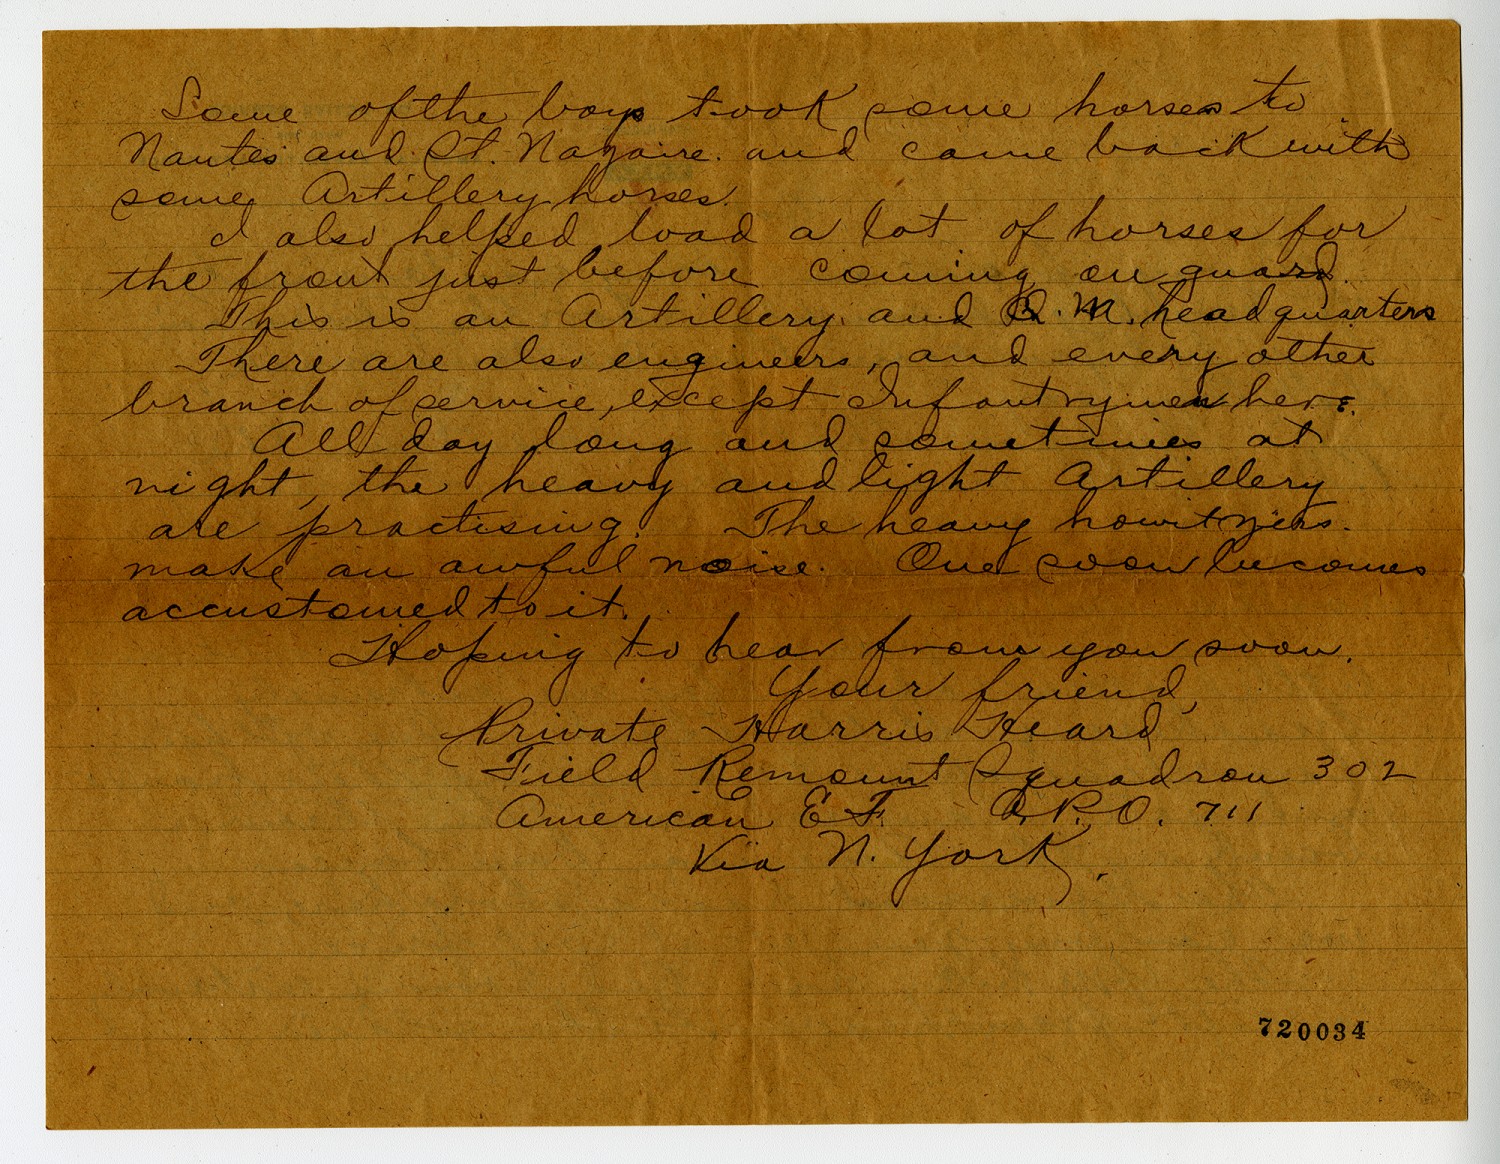 Some of the boys took some horses to
Nantes and St. Nazaire. and came back with
some Artillery horses.
I also helped load a lot of horses for
the front just before coming on guard.
This is an Artillery and Q.M. headquarters
There are also engineers, and every other
branch of service, except Infantrymen here.
All day long and sometimes at
night, the heavy and light Artillery
are practising. The heavy howitzers.
make an awful noise. One soon becomes
accustomed to it.
Hoping to hear from you soon.
Your friend,
Private Harris Heard
Field Remount Squadron 302
American E.F. A.P.O. 711
Via N. York.
720034